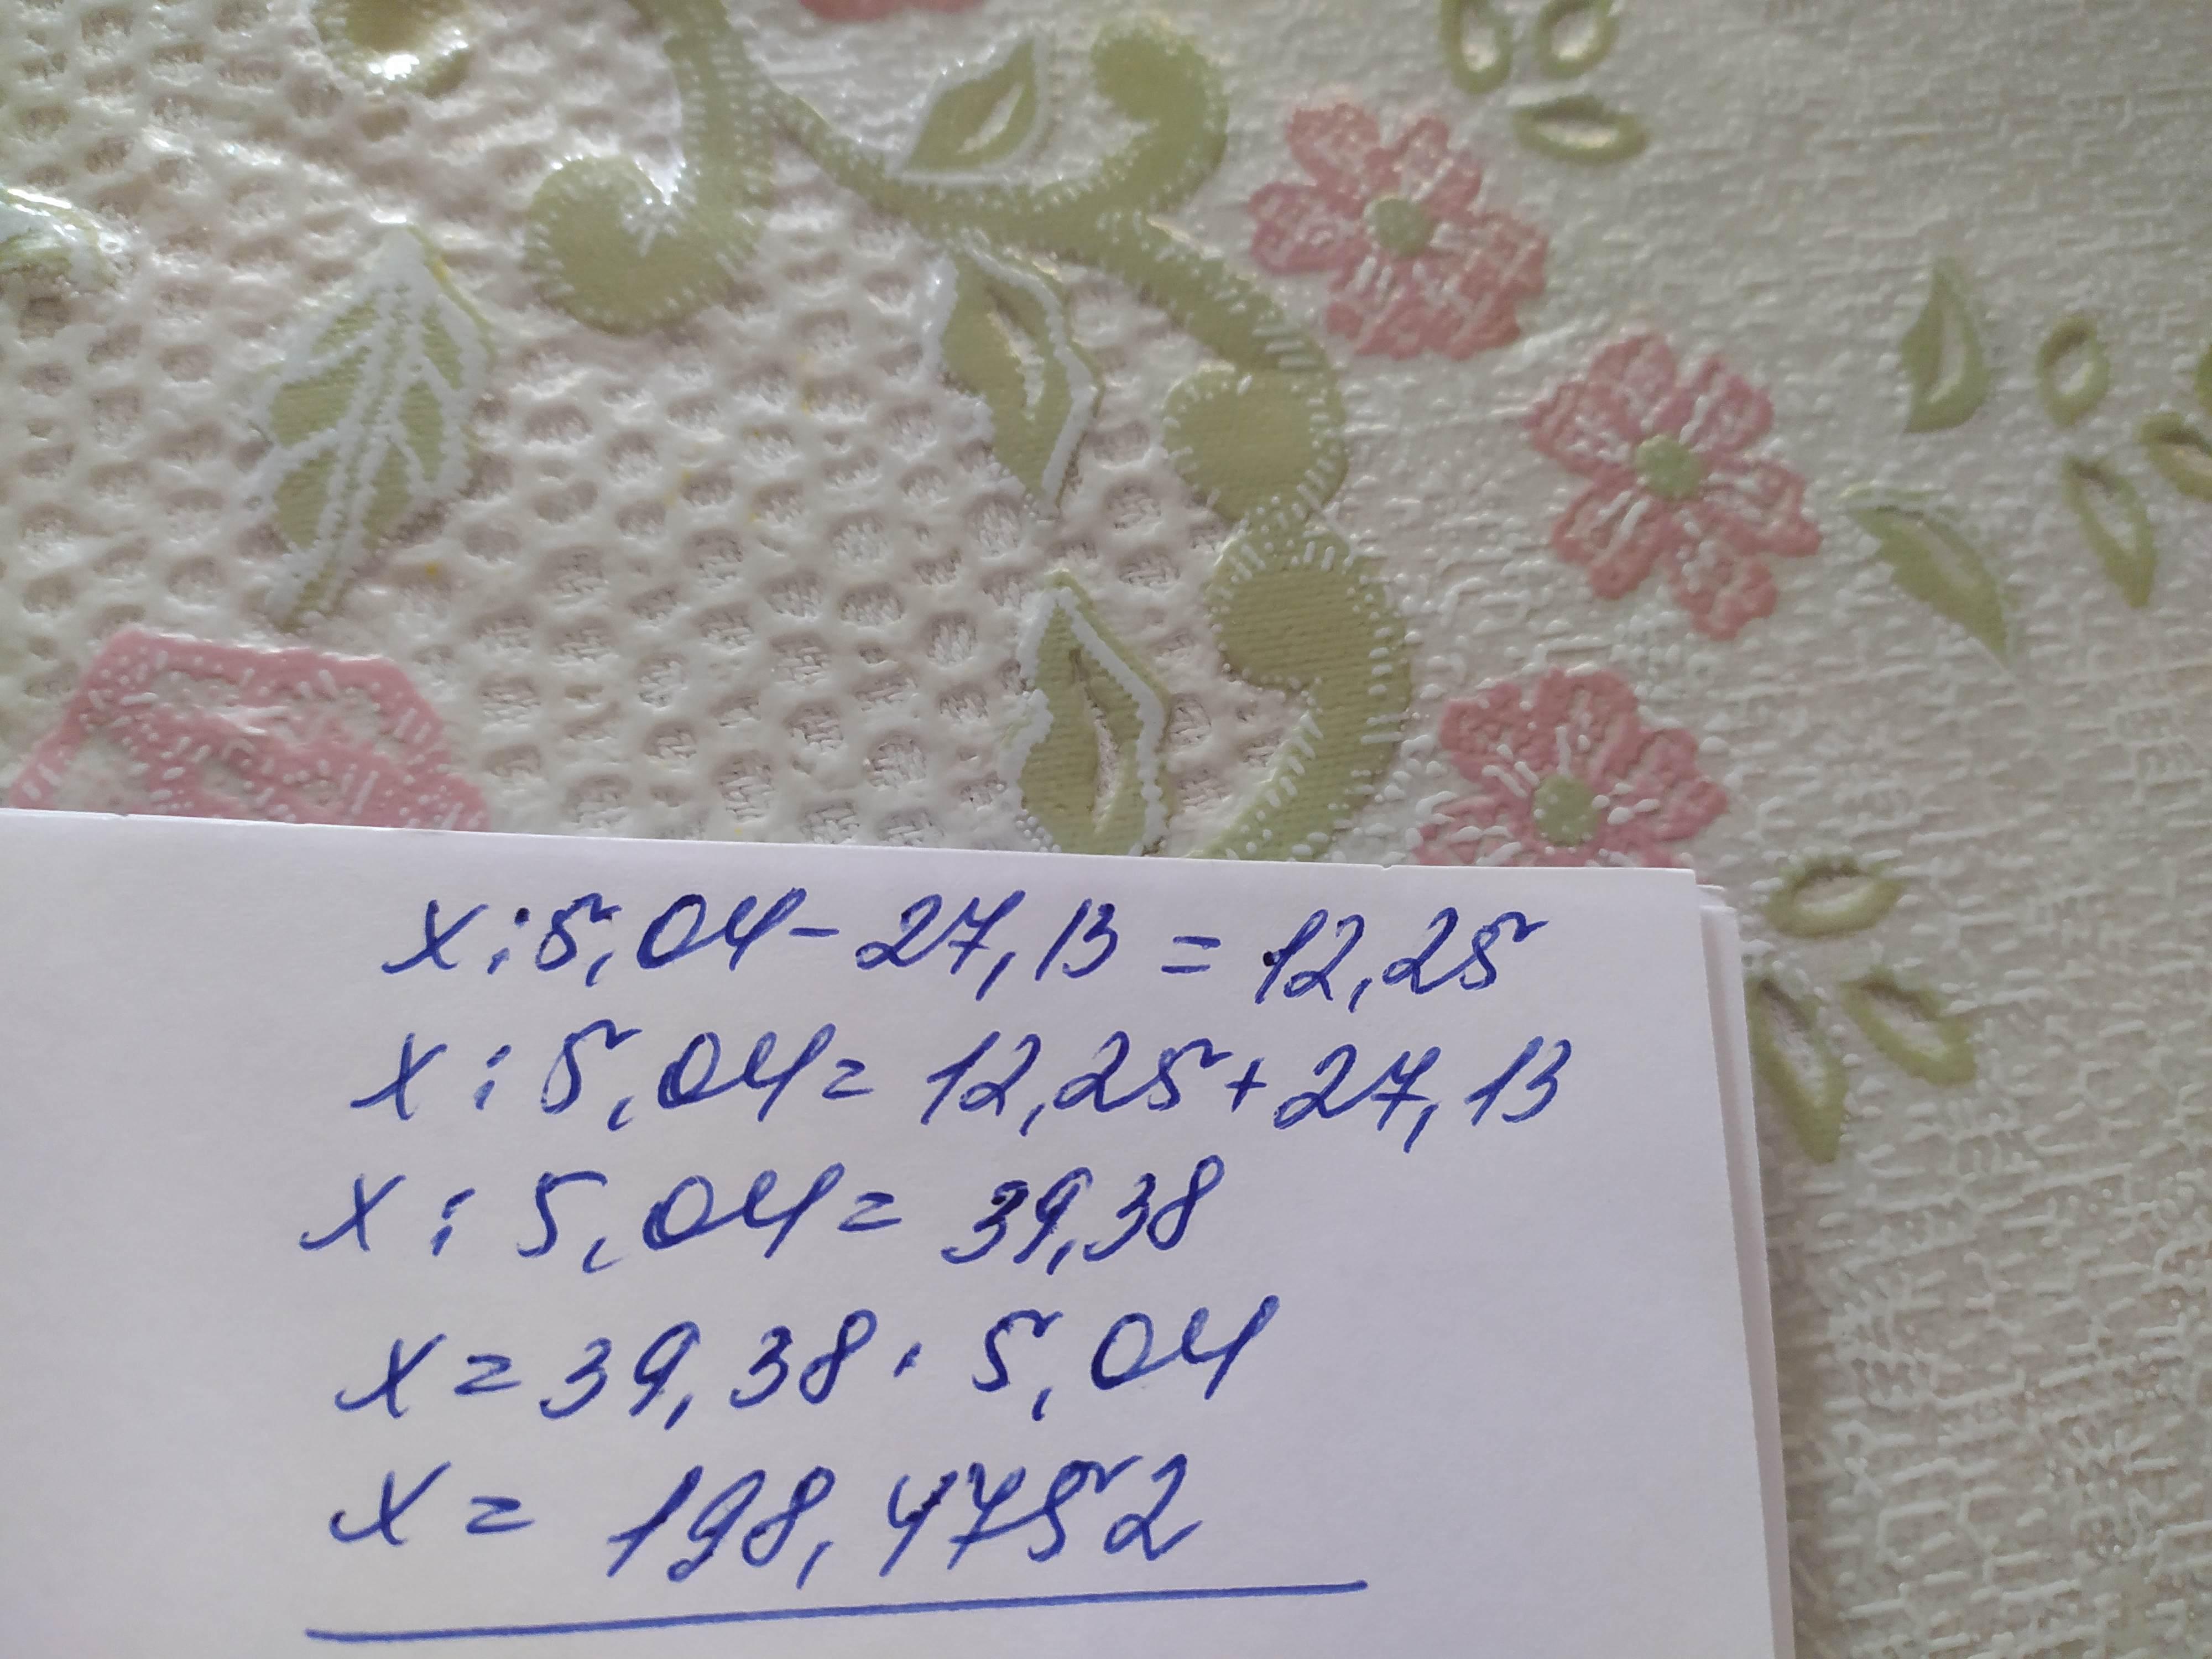 x : 5,04 - 27,13 = 12,25
x : 5,04 = 12,25 + 27,13
x : 5,04 = 39,38
x = 39,38 · 5,04
x = 198,4752